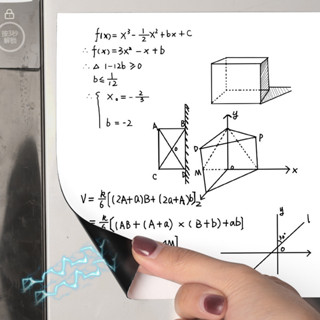 f(x)= x³- 1/2 x²+bx+c
∴ f(x)=3x²-x+b
∴ △ 1-12b ≥0
b≤ 1/12
∴ { x₀ = - 2/3
b = -2
A B
O
C D
y
D P
M o x
z
V= h/6 [(2A+a)B+(2a+A)b]
= h/6 [(AB+(A+a)×(B+b)+ab]
y l
30°
O